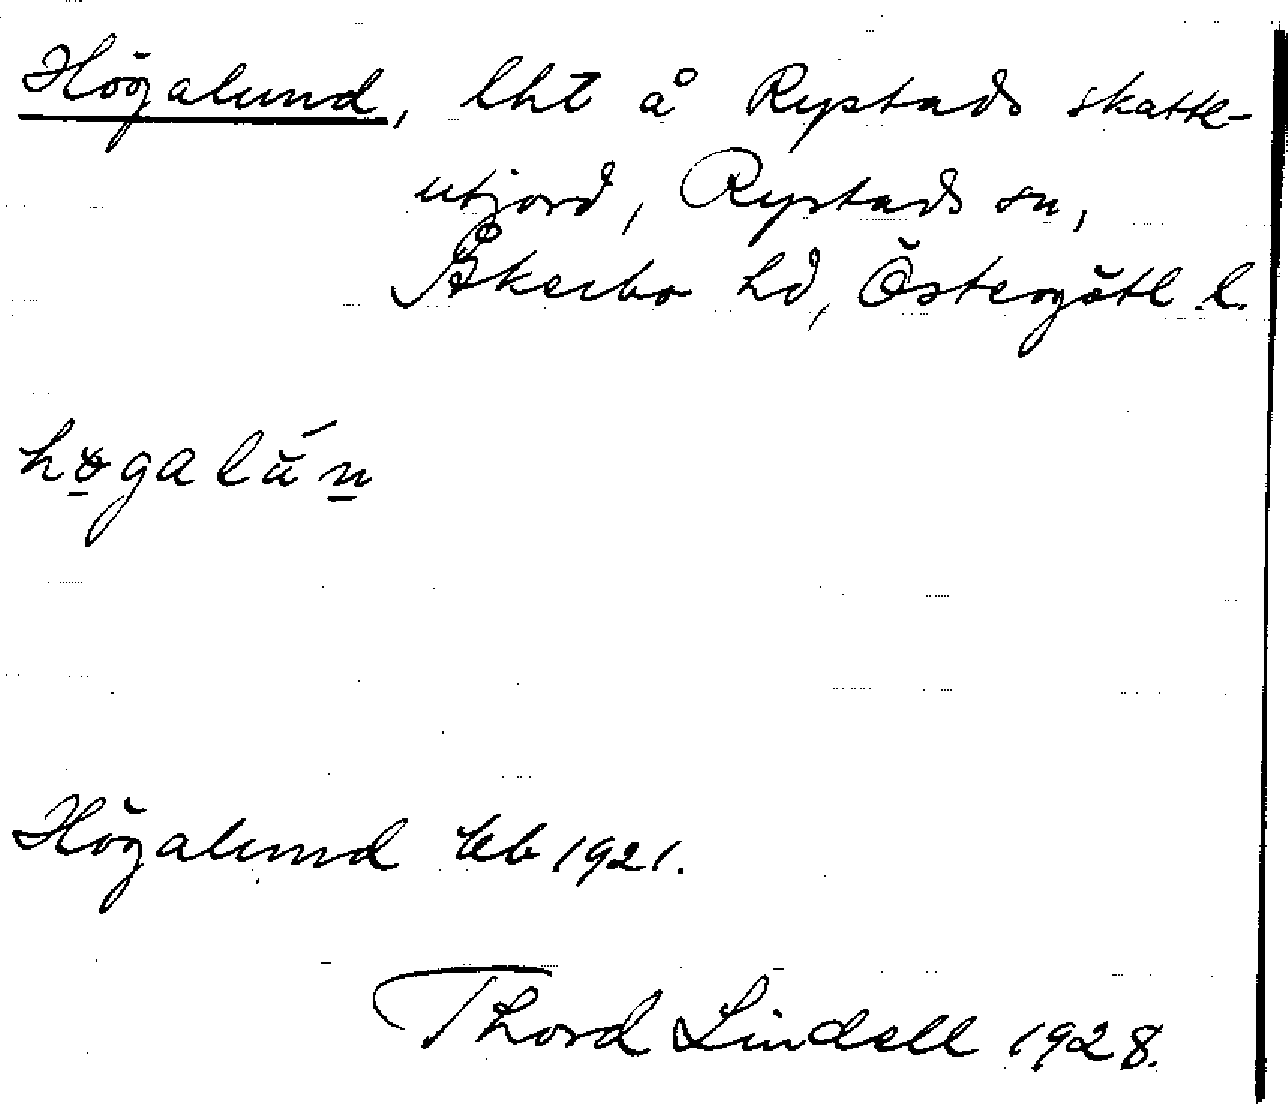 Högalund, lht å Rystads skatte-
utjord, Rystads sn,
Åkerbo hd, Östergötl. l.
høgalún
Högalund kb 1921.
Thord Lindell 1928.